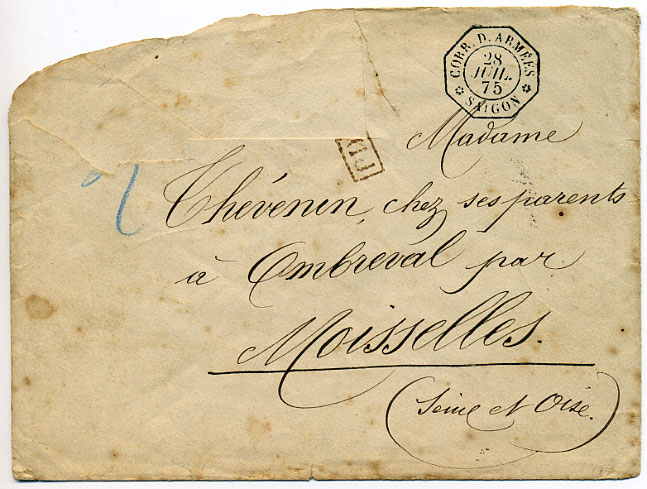 CORR. D. ARMÉES
28
JUIL.
75
SAIGON
PD
Madame
Thévenin, chez ses parents
à Ombreval par
Moisselles.
(Seine et Oise.)